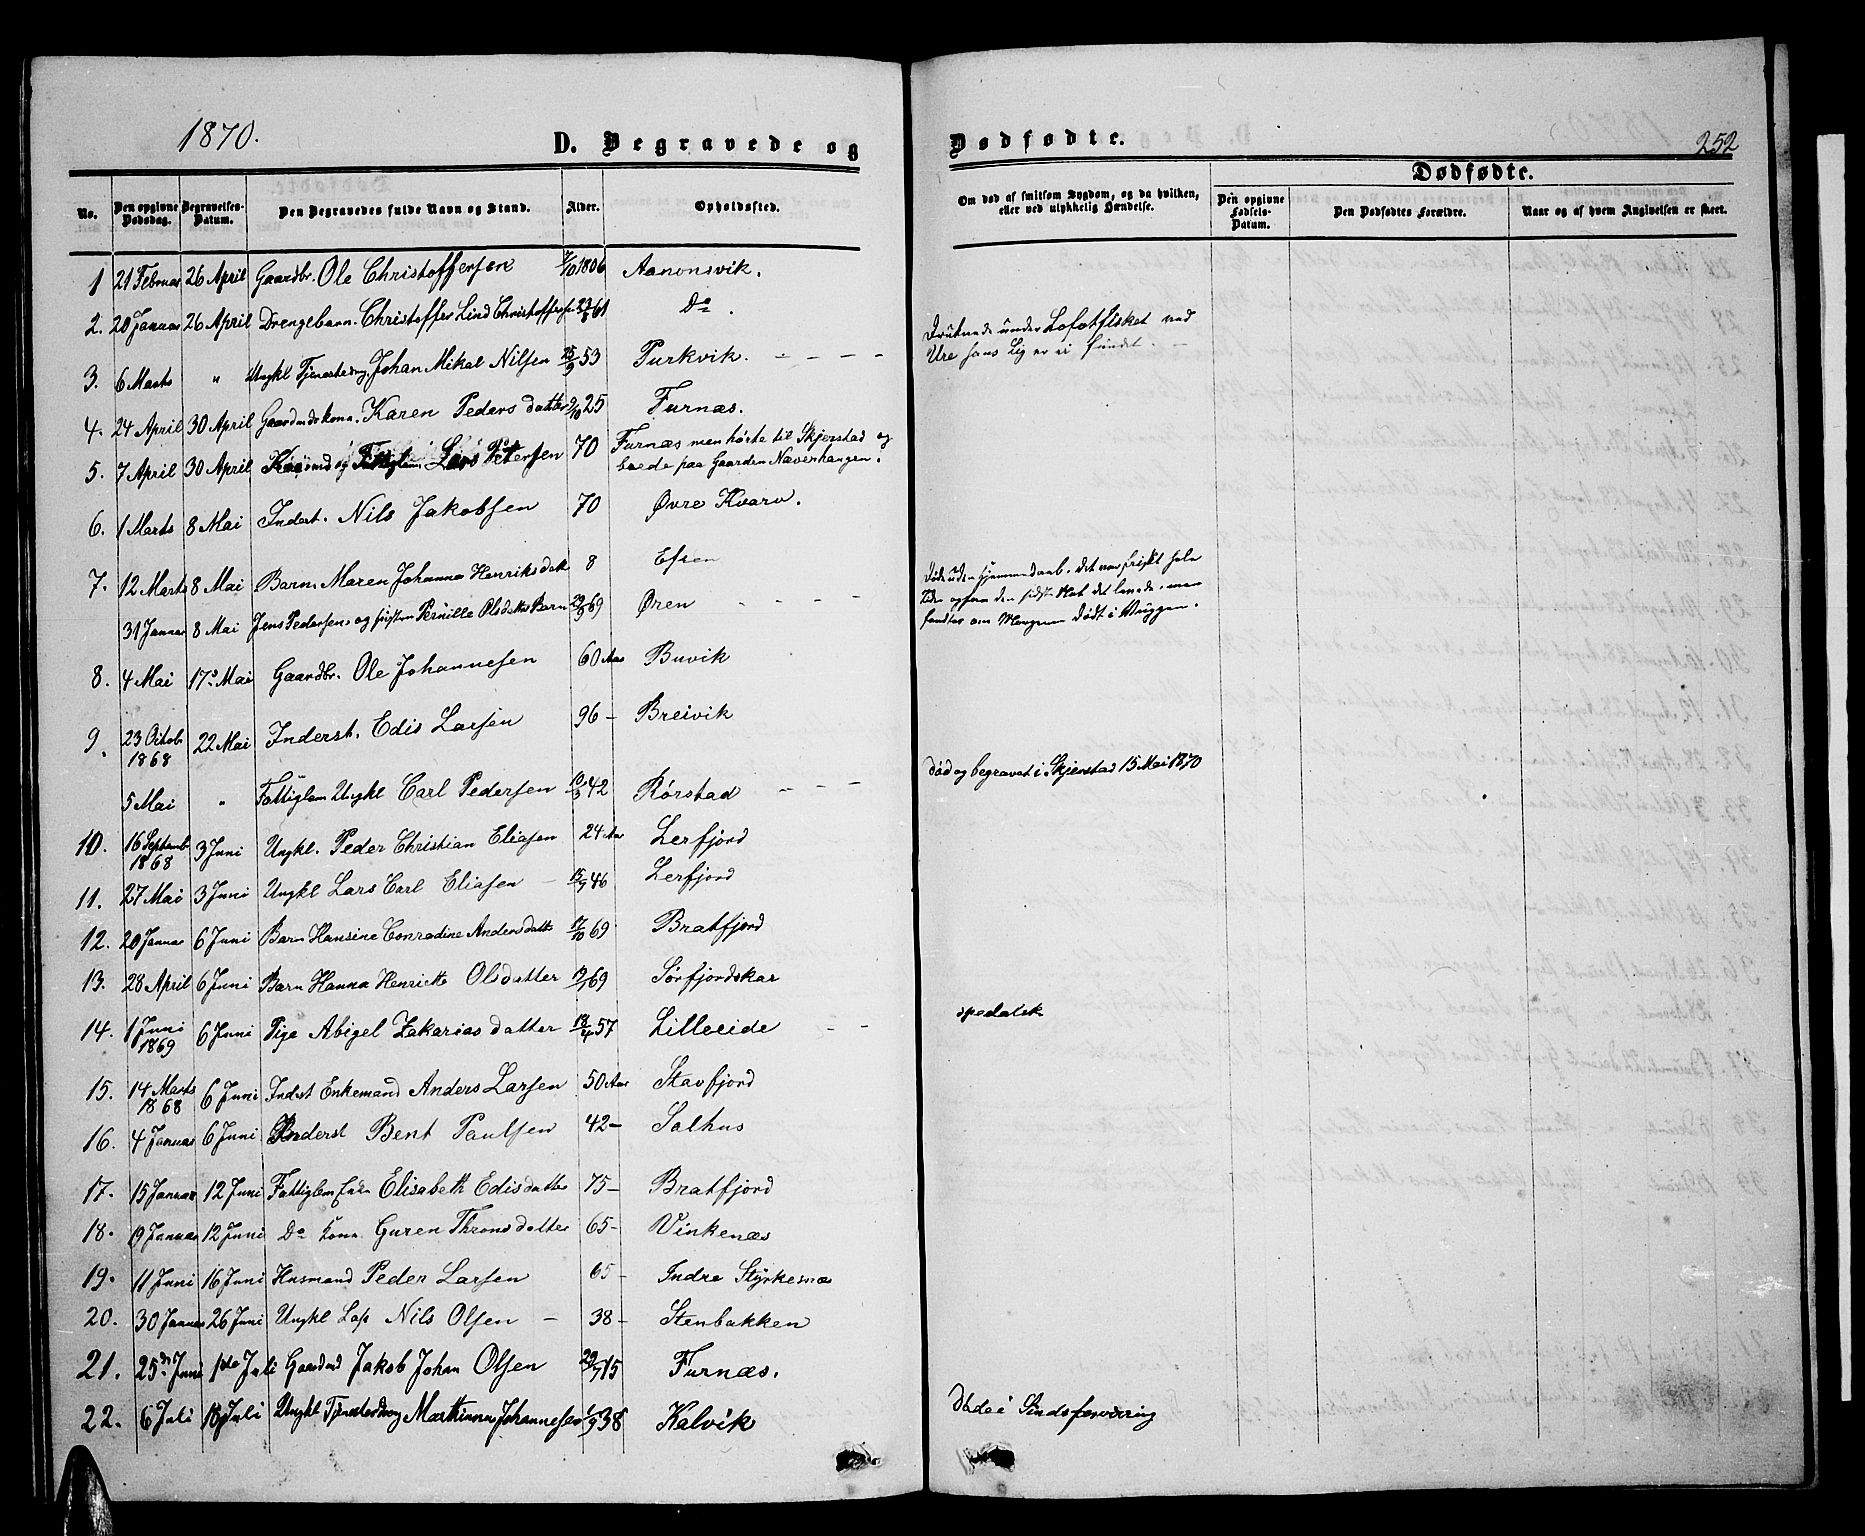 1870.
D. Begravede og
Dødfødte.
252
No.
Den opgivne Dødsdag.
Begravelses-Datum.
Den Begravedes fulde Navn og Stand.
Alder.
Opholdssted.
Om død af smitsom Sygdom, og da hvilken, eller ved ulykkelig Hændelse.
Dødfødte.
Den opgivne Fødsels-Datum.
Den Dødfødtes Forældre.
Naar og af hvem Angivelsen er skeet.
1 21 Februar 26 April Gaardbr. Ole Christoffersen 7/10 1806 Aanonsvik.
2. 20 Januar 26 April Drengebarn Christoffer Lind Christoffersen 61 Do.
3. 6 Marts " Ungkl Tjenestedrg. Johan Mikal Nilsen 25/9 53 Purkvik. - - - - Druknede under Lofotfisket ved
Ure hans Lig er ei fundet. -
4. 24 April 30 April Gaardmdskone. Karen Peders datter 2/10 25 Furnæs.
5. 7 April 30 April og Fattiglem Lars Petersen 70 Furnæs men hørte til Skjerstad og
boede paa Gaarden Næverhaugen.
6. 1 Marts 8 Mai Inderst. Nils Jakobsen 70 Øvre Kvarv.
7. 12 Marts 8 Mai Barn. Maren Johanna Henriksdatt 8 Efsen
31 Januar 8 Mai Jens Pedersens og hustru Pernille Olsdatters Barn 69 Øren - - - - Døde uden hjemmedaab. det var friskt hele
Tiden ogsaa den sidst Nat det levede, men
fandtes om Morgenen dødt i Vuggen.
8. 4 Mai 17. Mai Gaardbr. Ole Johannesen 60 Aar Buvik
9. 23 Octob. 1868 22 Mai Inderst. Edis Larsen 96 - Breivik
5 Mai " Fattiglem Ungkl Carl Pedersen 10/3 42 Rørstad - - - død og begravet i Skjerstad 15 Mai 1870
10. 16 Septemb 1868 3 Juni Ungkl. Peder Christian Eliasen 24 Aar Lerfjord
11. 27 Mai 3 Juni Ungkl Lars Carl Eliasen - 15/9 46 Lerfjord
12. 20 Januar 6 Juni Barn Hansine Conradine Andersdatt 17/10 69 Bratfjord
13. 28 April 6 Juni Barn Hanna Henriette Olsdatter 69 Sørfjordskar
14. 1 Juni 1869 6 Juni Pige Abigel Zakarias datter 18/4 57 Lilleeide - - spedalsk
15. 14 Marts 1868 6 Juni Indest Enkemand Anders Larsen 50 Aar Stavfjord
16. 4 Januar 6 Juni Inderst Bent Paulsen 42 - Salhus
17. 15 Januar 12 Juni Fattiglem Enke Elisabeth Edisdatter 75 - Bratfjord
18. 19 Januar 12 Juni Do kone Guren Thronsdatter 65 - Vinkenæs
19. 11 Juni 16 Juni Husmand Peder Larsen 65 - Indre Styrkesnæs
20. 30 Januar 26 Juni Ungkl Lap Nils Olsen - 38 - Stenbakken
21. 25de Juni 1ste Juli Gaardmd Jakob Johan Olsen 29/7 15 Furnæs.
22. 6 Juli 18 Juli Ungkl Tjenestedreng Martinus Johannesen 1/9 38 Kalvik Døde i Sindsforvirring